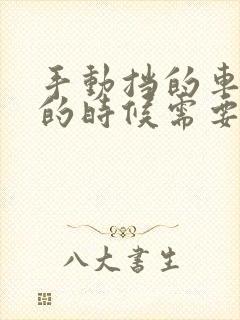 手動挡的車
的時候需要
八大書生